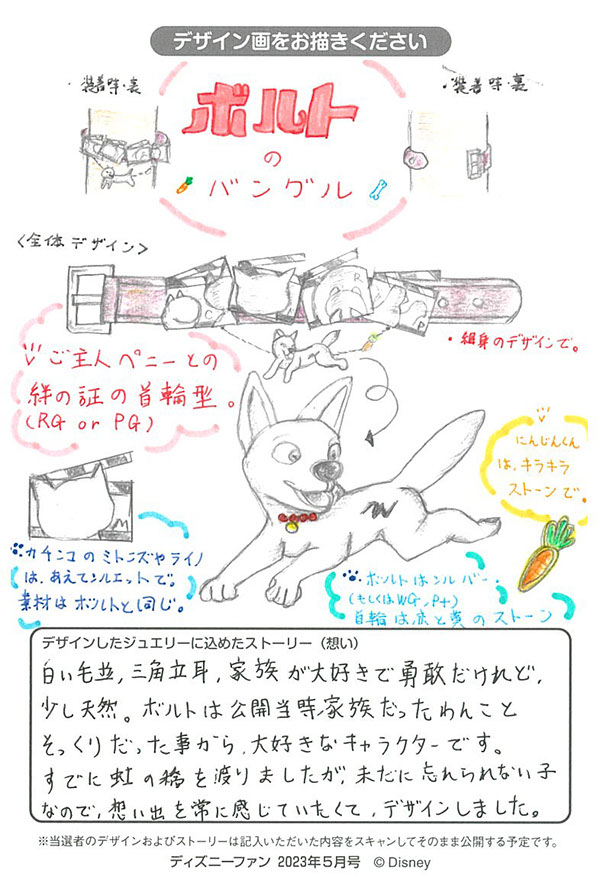 デザイン画をお描きください
・装着時・表
・装着時・裏
ボルト
の
バングル
<全体デザイン>
・細身のデザインで。
ご主人ペニーとの
絆の証の首輪型。
(RG or PG)
にんじんくん
は、キラキラ
ストーンで。
カチンコのミトンズやライノ
は、あえてシルエットで。
素材はボルトと同じ。
ボルトはシルバー
(もしくはWG、Pt)
首輪は赤と黄のストーン
デザインしたジュエリーに込めたストーリー（想い）
白い毛並,三角立耳,家族が大好きで勇敢だけれど,
少し天然。ボルトは公開当時家族だったわんこと
そっくりだった事から,大好きなキャラクターです。
すでに虹の橋を渡りましたが,未だに忘れられない子
なので,想い出を常に感じていたくて,デザインしました。
※当選者のデザインおよびストーリーは記入いただいた内容をスキャンしてそのまま公開する予定です。
ディズニーファン 2023年5月号 ©Disney